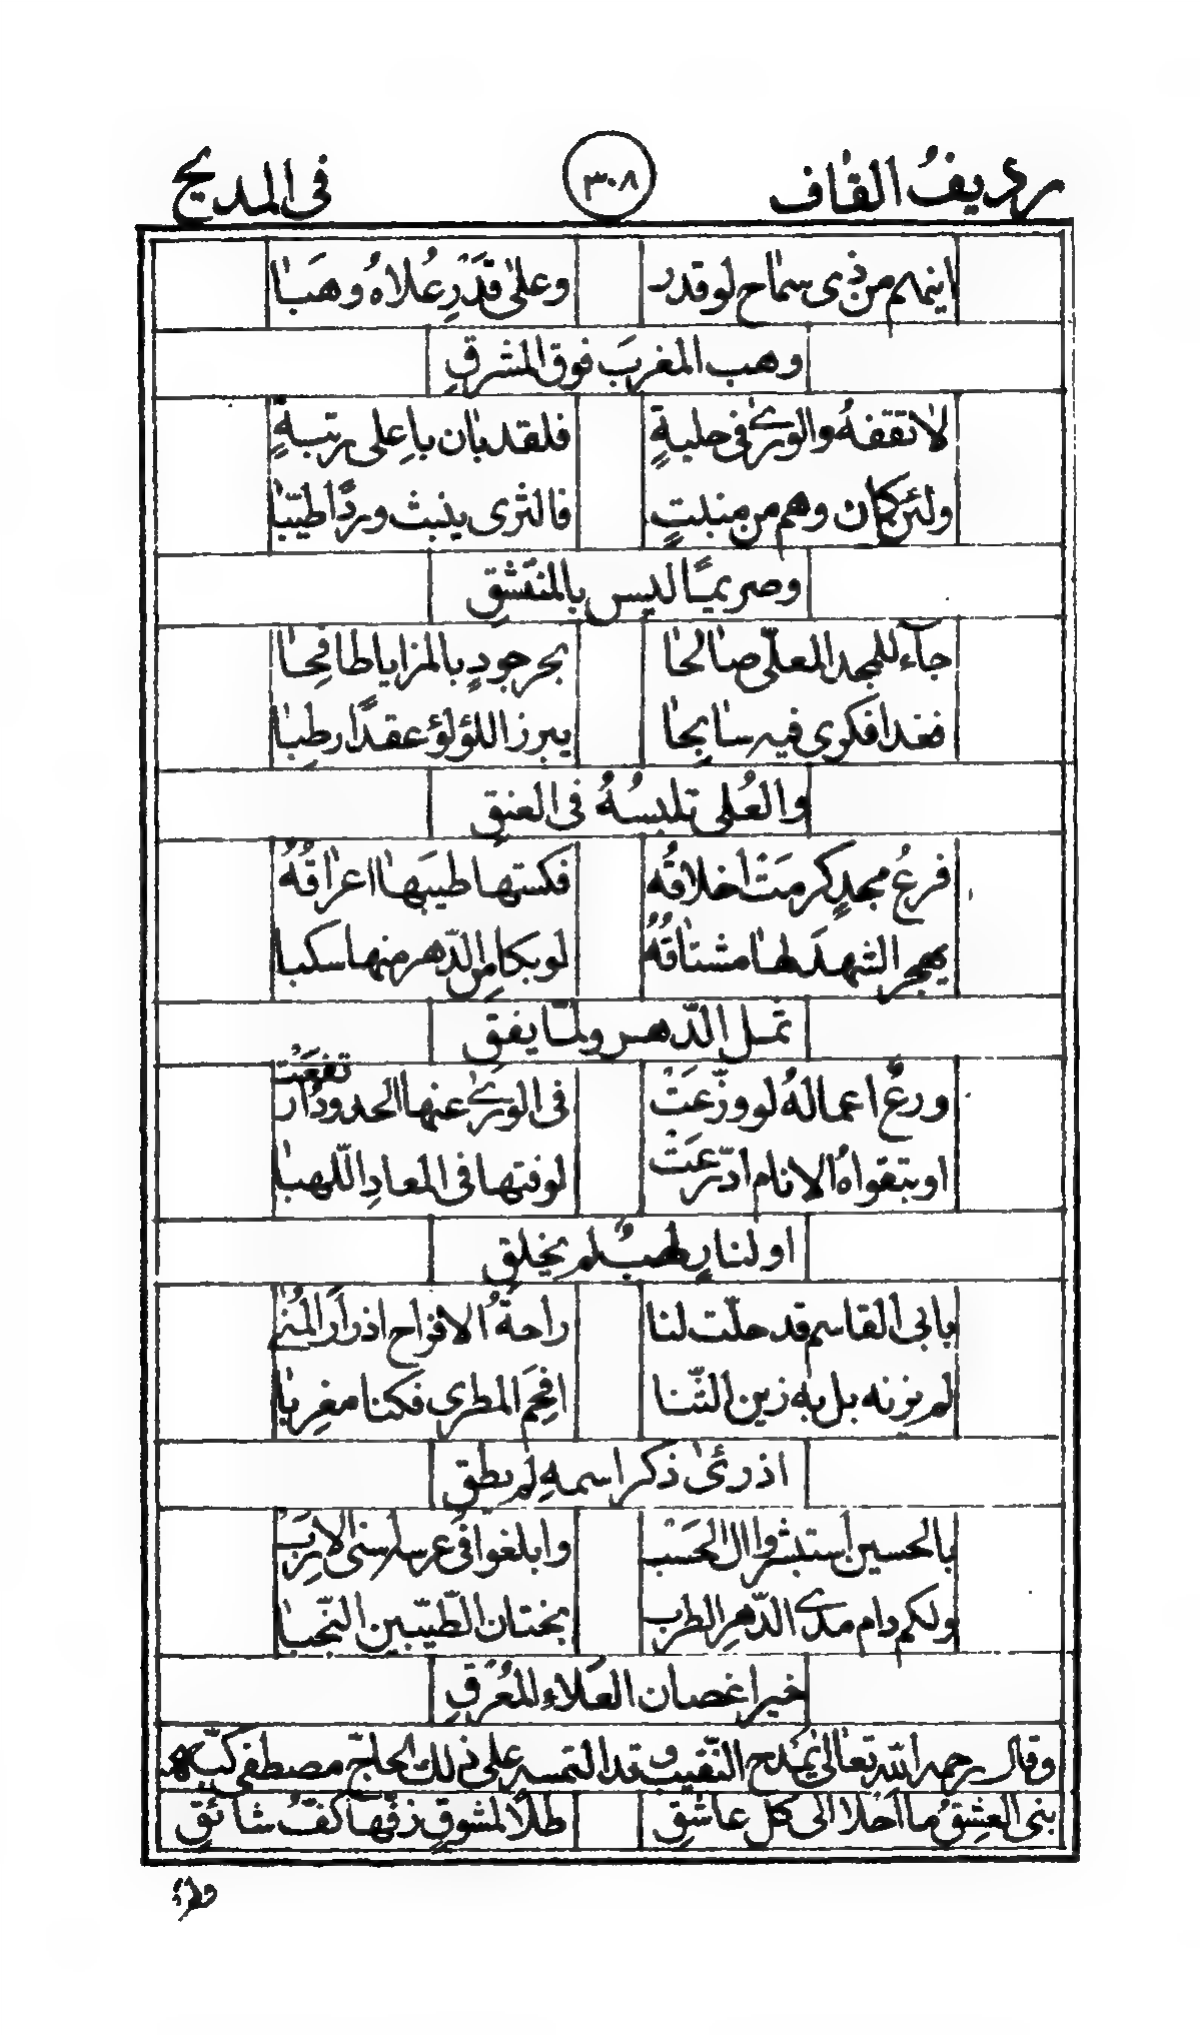 رديفُ القاف ٣٠٨ في المديح
اينهم من ذي سماح لو قدر وعلى قَدَرِ عُلاهُ وهَبا
وهب المغربَ فوق المشرقِ
لا تقفهُ والورى في حلبةٍ فلقد بان باعلى رتبةٍ
ولئن كان وهم من منبتٍ فالثرى ينبت وردًا طيّبا
وصريميًا ليس بالمنتشقِ
جآء للمجد المعلّى صالحا بحر جودٍ بالمزايا طافحا
فغدا فكري فيه سابحا يبرز اللؤلؤ عقدًا رطبا
والعُلى تلبسُهُ في العنق
فرعُ مجدٍ كرمَتْ اخلاقُه فكستها طيبَها اعراقُهُ
يهجر الشهدَ لها مشتاقُهُ لو بكاسِ الدّهر منها سكبا
ثمل الدّهر ولمّا يفق
ورعٌ اعمالهُ لو وزّعَتْ في الورى عنها الحدودُ ارتفعَتْ
او بتقواهُ الانام ادّرعَتْ لوقتها في المعادِ اللّهبا
او لنارٍ حطبٌ لم يخلق
بابي القاسم قد حلّت لنا راحةُ الافراح اذرارَ المُنى
لم نزنه بل به زين الثّنا افحَم المطري فكنا مغربا
اذ رئى ذكر اسمهِ لم يطق
بالحسين استبشروا ال الحَسَب وابلغوا في عرسه اسنى الارَب
ولكم دام مدى الدّهرِ الطرب بختان الطّيّبين النّجبا
خير اغصان العَلاء المُعْرِقِ
وقال رحمه الله تعالى يمدح النّقيب وقد التمسه على ذلك الحاجّ مصطفى كبّه
بنى العِشقِ ما احلا الى كل عاشق طلًا لمشوقٍ زفّها كفُّ شائقِ